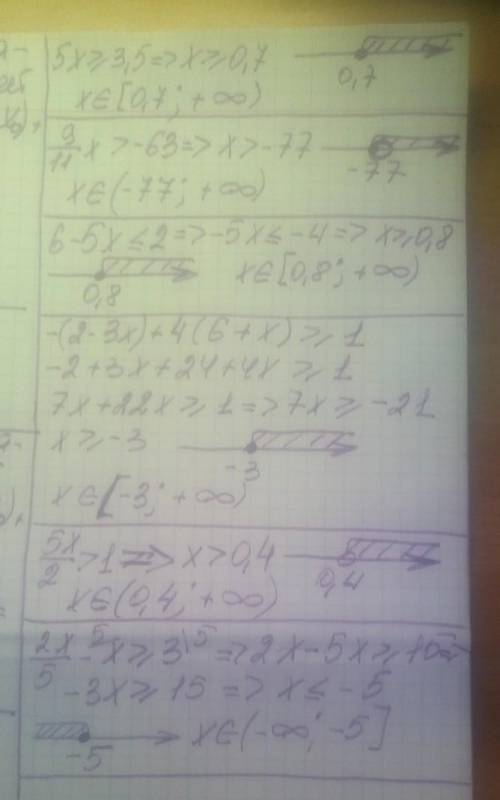 5x≥3,5=>x≥0,7
0,7
x∈[0,7; +∞)
9/11 x>-63=>x>-77
-77
x∈(-77; +∞)
6-5x≤2=>-5x≤-4=>x≥0,8
0,8
x∈[0,8; +∞)
-(2-3x)+4(6+x)≥1
-2+3x+24+4x≥1
7x+22x≥1=>7x≥-21
x≥-3
-3
x∈[-3; +∞)
5x/2>1=>x>0,4
0,4
x∈(0,4; +∞)
2x/5-⁵x≥3\⁵=>2x-5x≥15
-3x≥15=>x≤-5
-5
x∈(-∞; -5]